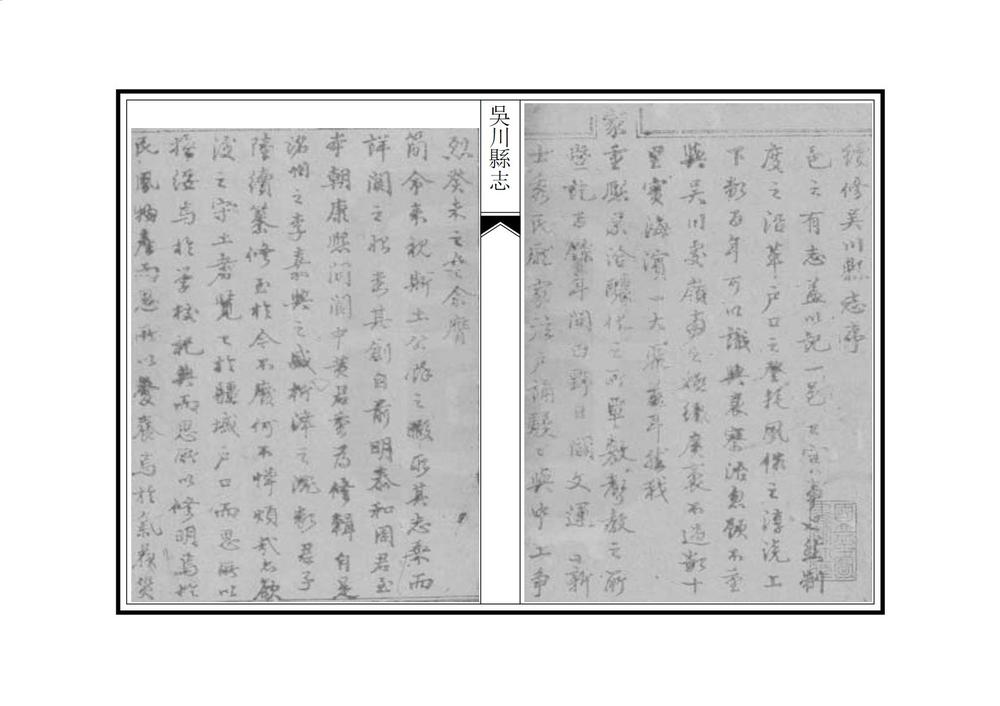 續修吳川縣志序
邑之有志盖以記一邑之實事也然制
度之沿革戶口之登耗風俗之淳澆上
下數百年可以識興衰察治忽顧不重
與吳川處嶺南之極纖廣袤不過數十
里實海濱一大聚落耳然我
重熙累洽驩忭之所單敷聲教之所
暨訖百餘年間田野日闢文運日新
士秀民龐家絃戶誦駸駸與中土爭
吳川縣志
烈癸未之冬余膺
簡命來視斯土公餘之暇取其志乘而
詳閱之始悉其創自前明泰和周君至
本朝康熙間閩中黃君重為修輯自是
洺州之李嘉興之盛析津之沈數君子
陸續纂修至於今不廢何不憚煩哉亦欲
後之守土者覽之於疆域戶口而思所以
撫綏焉於學校祀典而思所以修明焉於
民風物產而思所以愛養焉於氣候災